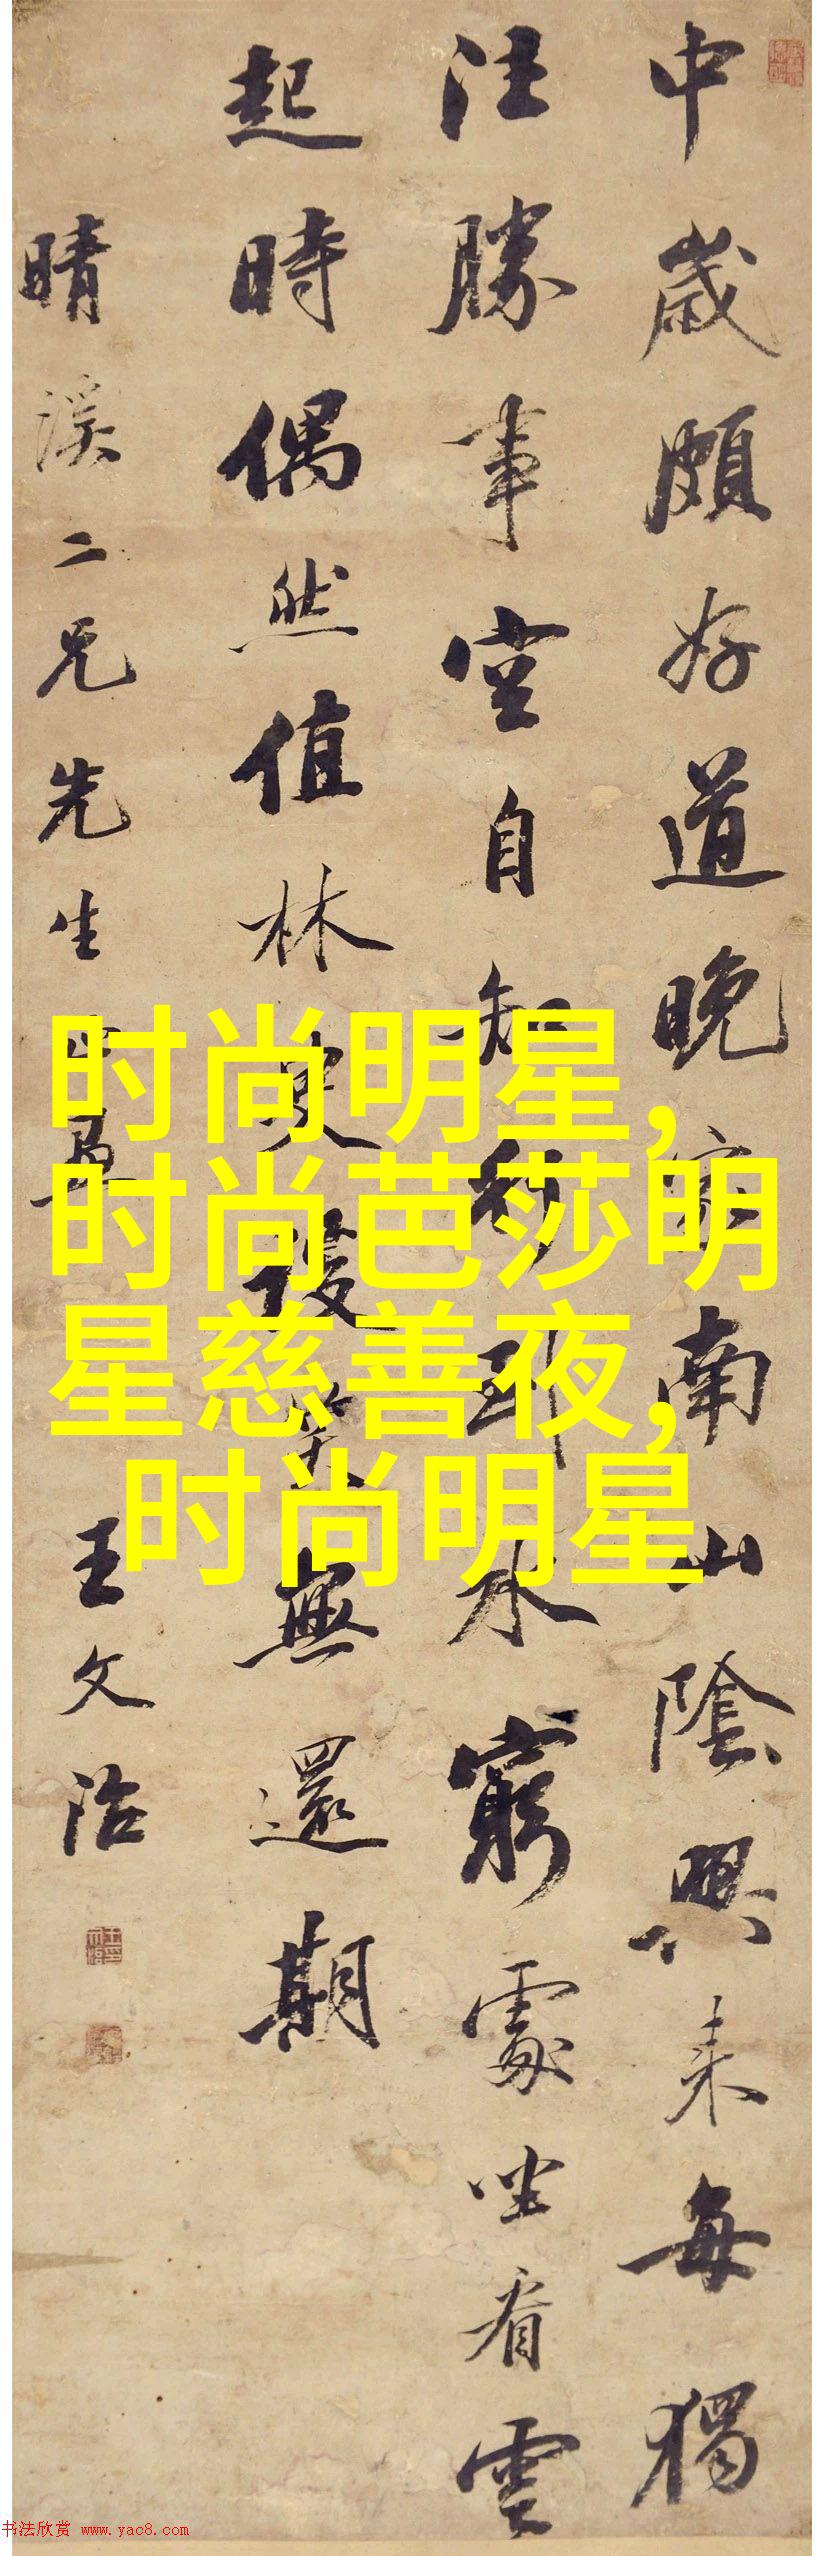 中歲頗好道晚家南山陰興来每獨
往勝事空自知行到水窮處坐看雲
起時偶然值林叟談笑無還期
晴溪二兄先生
王文治
时尚明星,
时尚芭莎明
星慈善夜,
时尚明星
书法欣赏 www.yac8.com